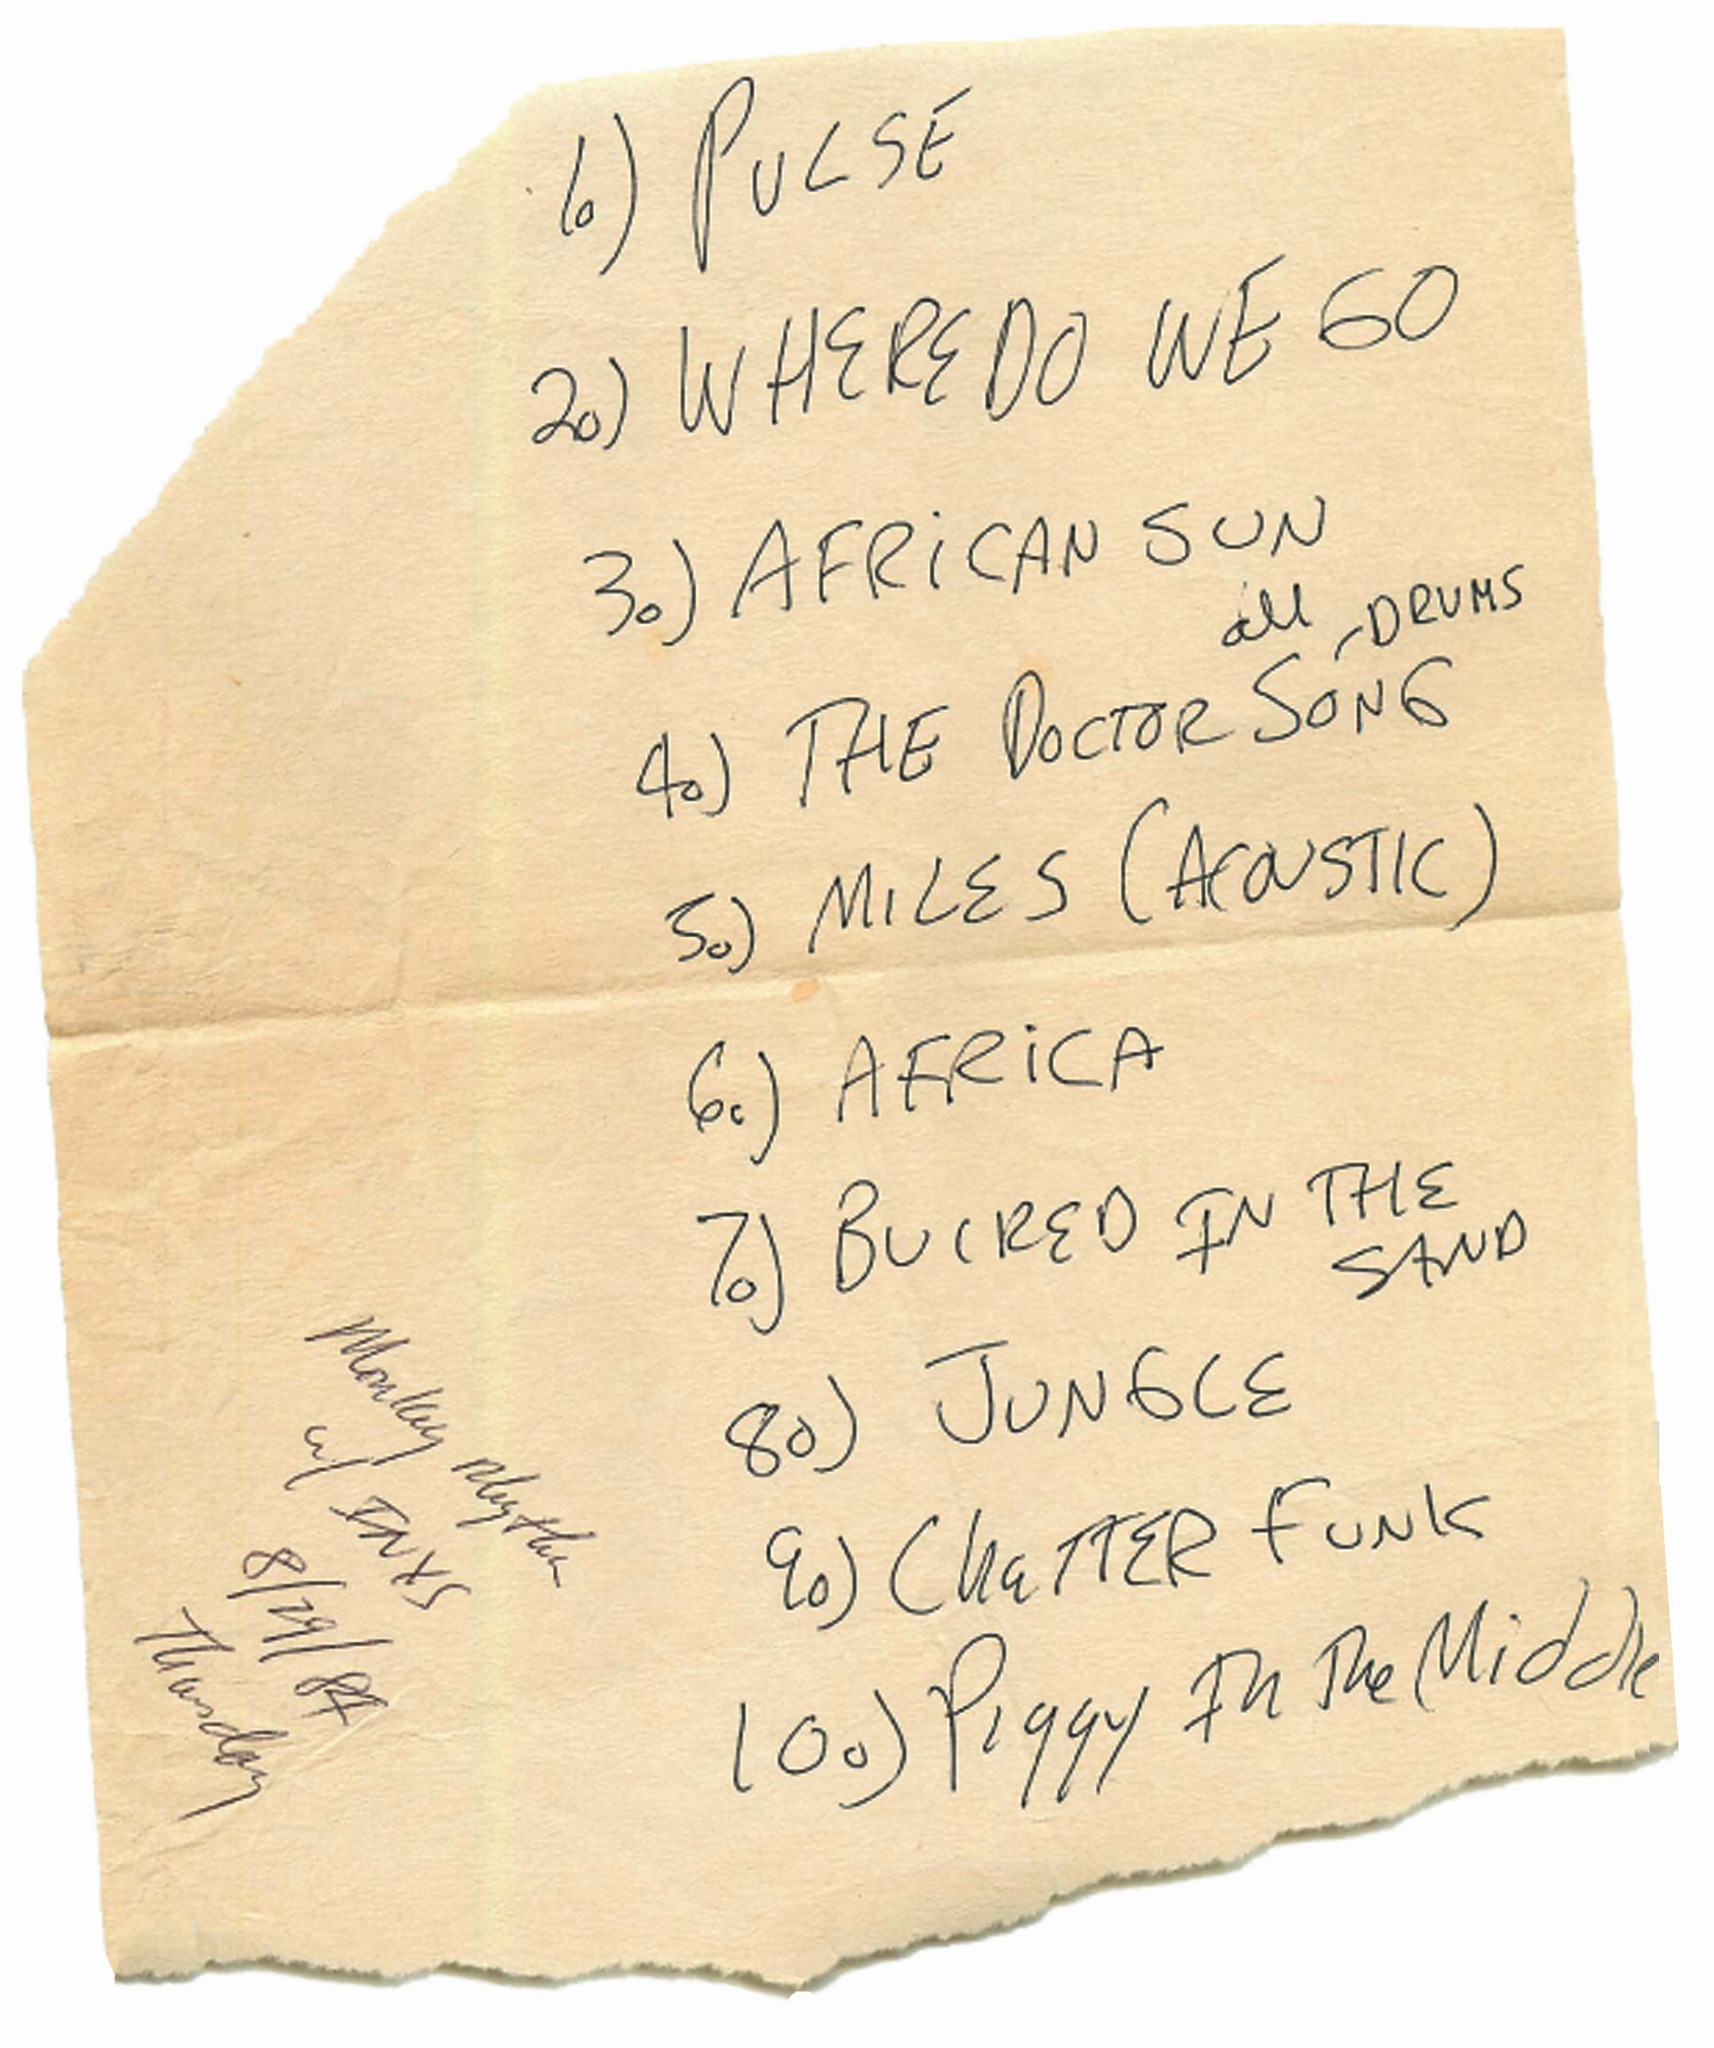 1.) PULSE
2.) WHERE DO WE GO
3.) AFRiCAN SUN
all - DRUMS
4.) THE DOCTOR SONG
5.) MILES (ACOUSTIC)
6.) AFRiCA
7.) BUIRED IN THE
SAND
8.) JUNGLE
9.) CHaTTER FUNK
10.) Piggy In The Middle
Monkey Rhythm
w/ INXS
8/29/84
Thursday